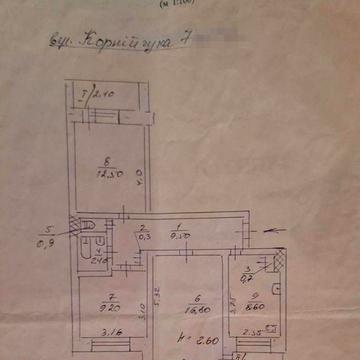 (М 1:100)
вул. Корнійчука 7
I/2.40
8
12.50
4.0
5
0,9
2
0,3
1
9.50
4
2.40
3
0,7
7
9.20
3.10
5,32
6
16,80
9
8.60
3.16
2.60
2.35